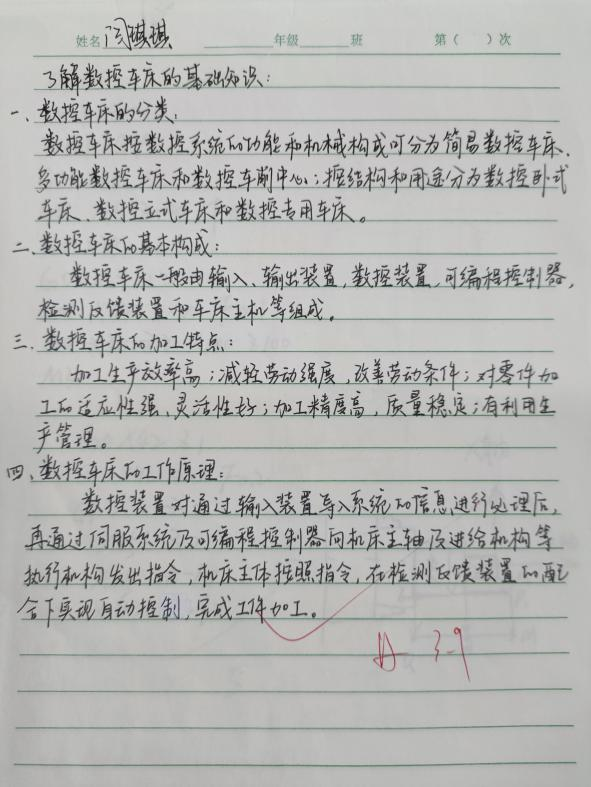 姓名 闫琪琪 年级 班 第( )次
了解数控车床的基础知识:
一、数控车床的分类:
数控车床按数控系统的功能和机械构成可分为简易数控车床、
多功能数控车床和数控车削中心;按结构和用途分为数控卧式
车床、数控立式车床和数控专用车床。
二、数控车床的基本构成:
数控车床一般由输入、输出装置,数控装置,可编程控制器,
检测反馈装置和车床主机等组成。
三、数控车床的加工特点:
加工生产效率高;减轻劳动强度,改善劳动条件;对零件加
工的适应性强、灵活性好;加工精度高,质量稳定;有利用生
产管理。
四、数控车床的工作原理:
数控装置对通过输入装置导入系统的信息进行处理后,
再通过伺服系统及可编程控制器向机床主轴及进给机构等
执行机构发出指令,机床主体按照指令,在检测反馈装置的配
合下实现自动控制,完成工件加工。
A 3-9